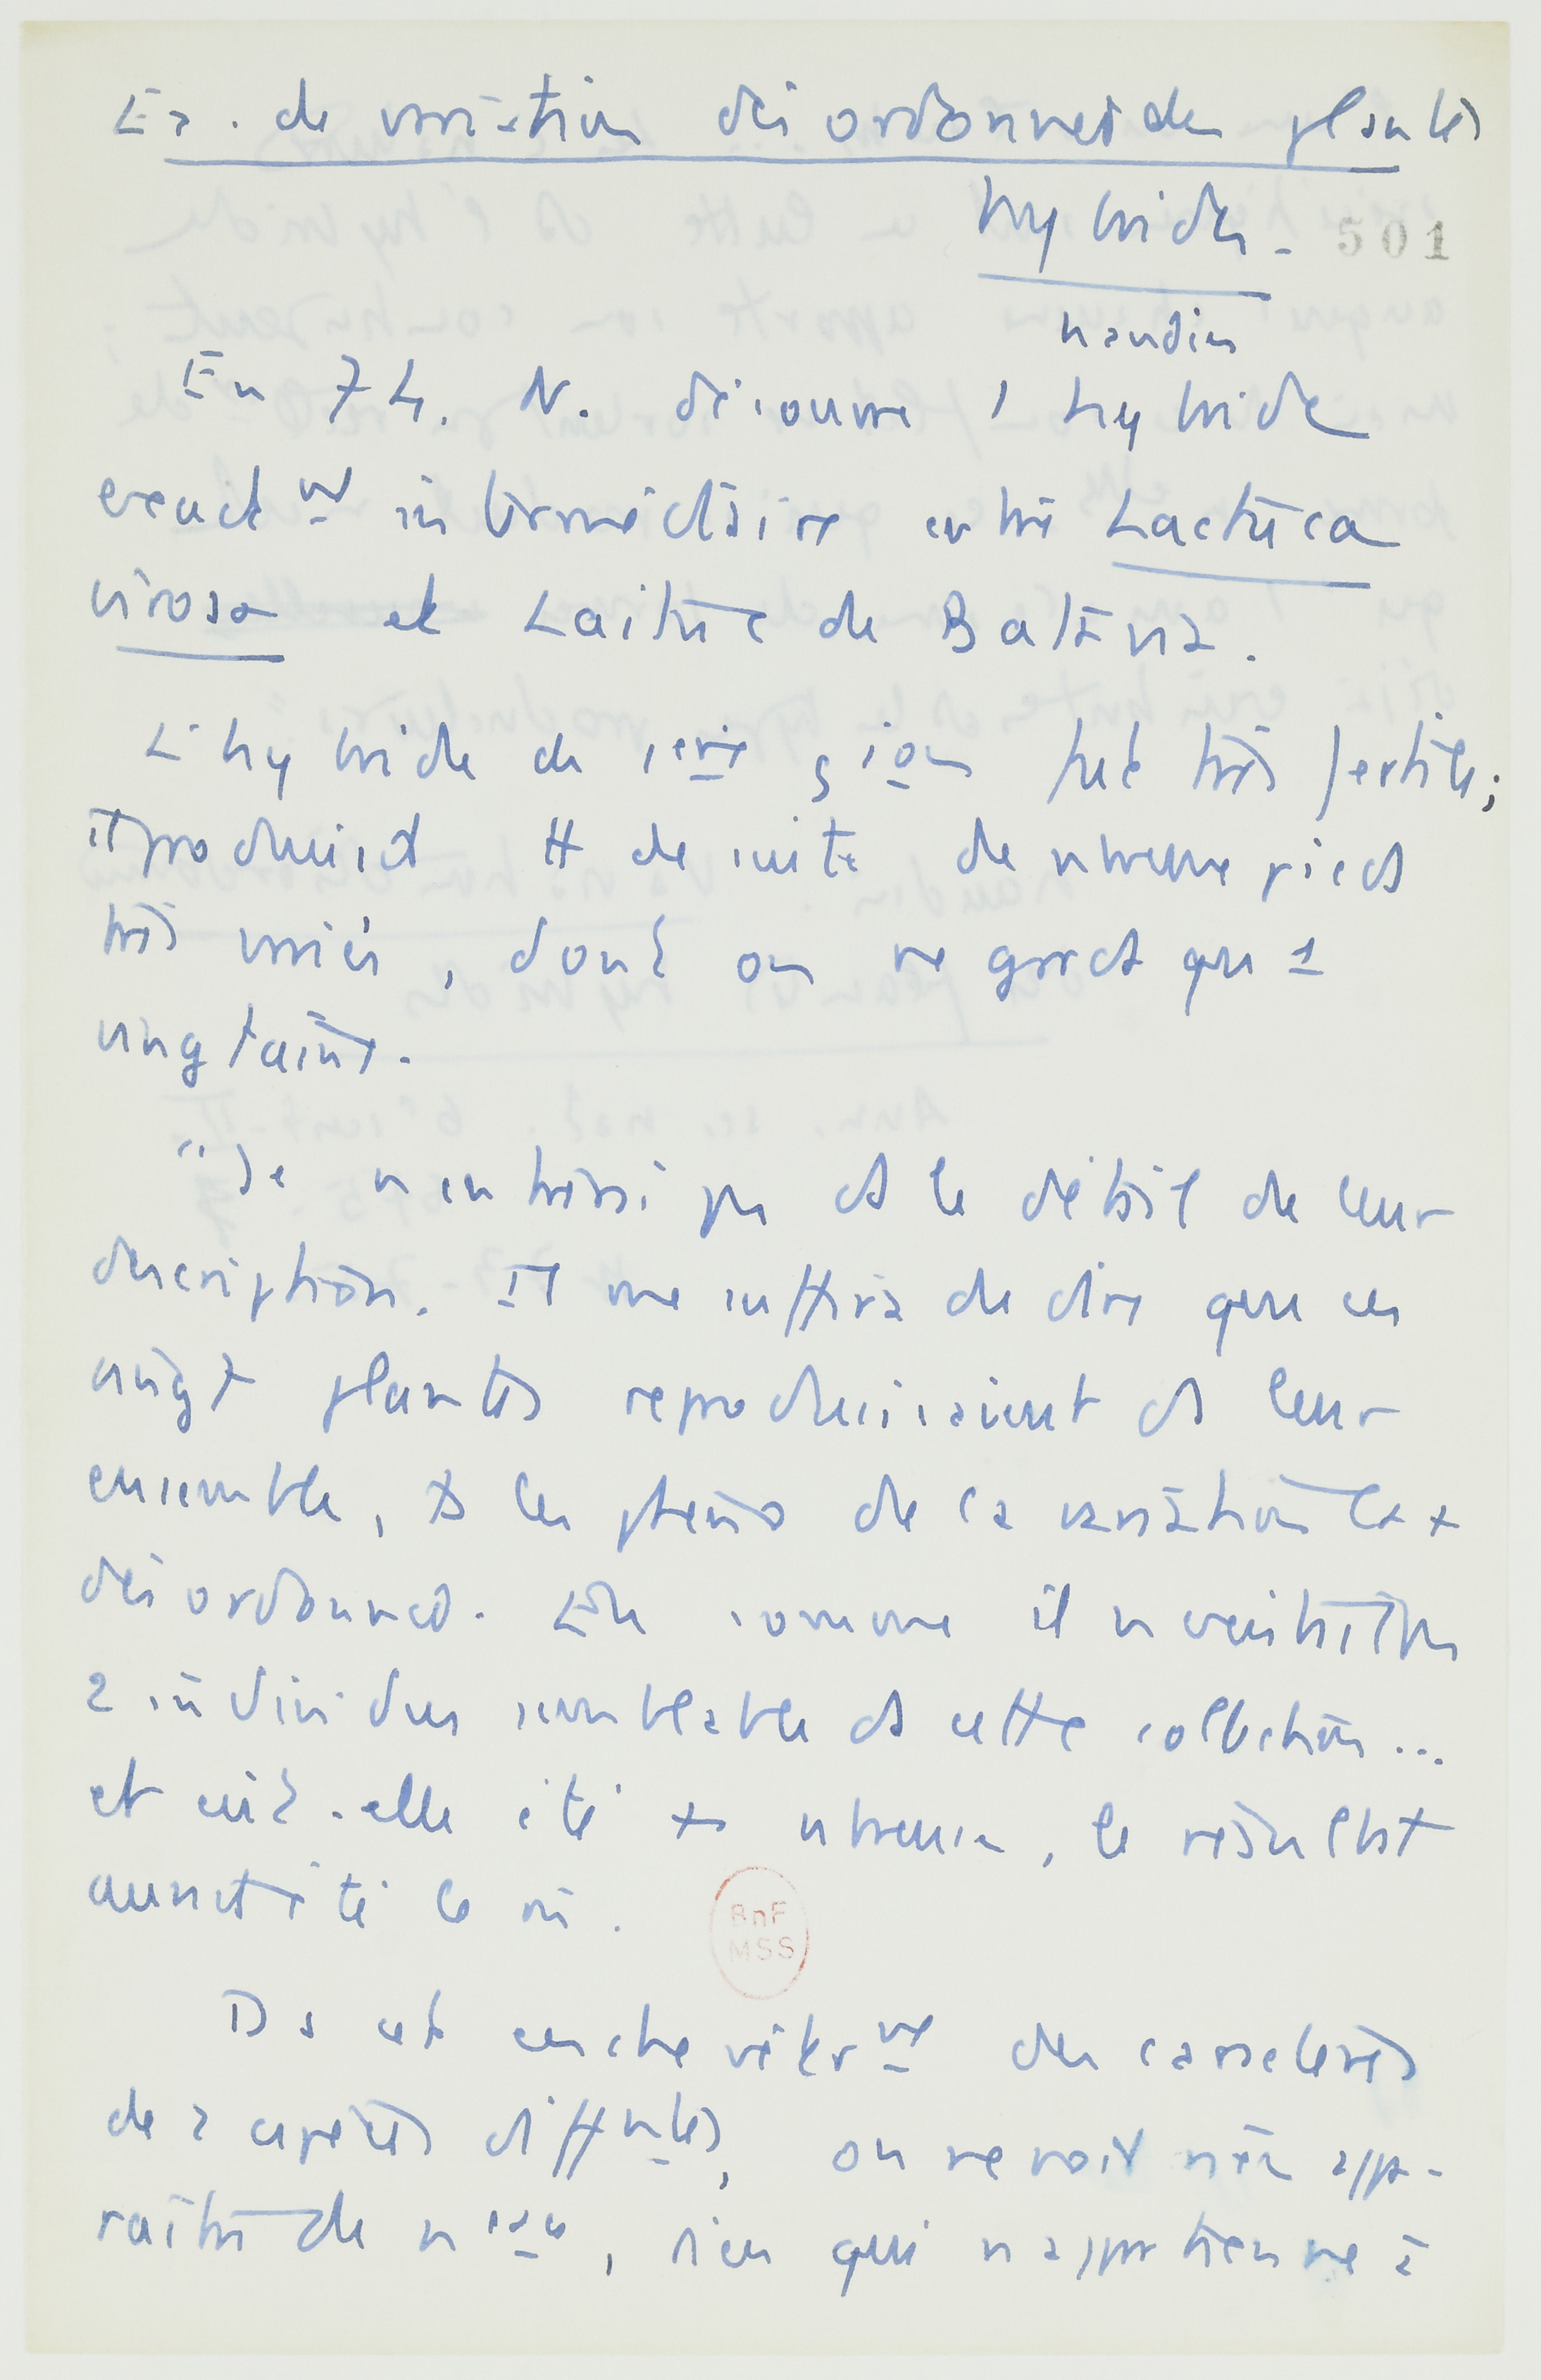 Ex. de variation désordonnée des plantes
hybrides -
501
naudin
En 74. N. découvre 1 hybride
exactmt intermédiaire entre Lactuca
virosa et Laitue de Batavia.
L'hybride de 1ère gion fut très fertile ;
il produisit tt de suite de nbreux pieds
très variés, dont on ne garda qu 1
vingtaine.
"Je n'entrerai pas ds le détail de leur
description. Il me suffira de dire que ces
vingt plantes reproduisaient ds leur
ensemble, ts les phéno de la variation la +
désordonnée. Elle comme il n'existait pas
2 individus semblables ds cette collection...
et eût-elle été + nbreuse, le résultat
aurait été le m̂.
Ds cet enchevêtrmt des caractères
de 2 espèces difffntes, on ne voit rien appa-
raître de nveau, rien qui n'appartienne à
BnF
MSS